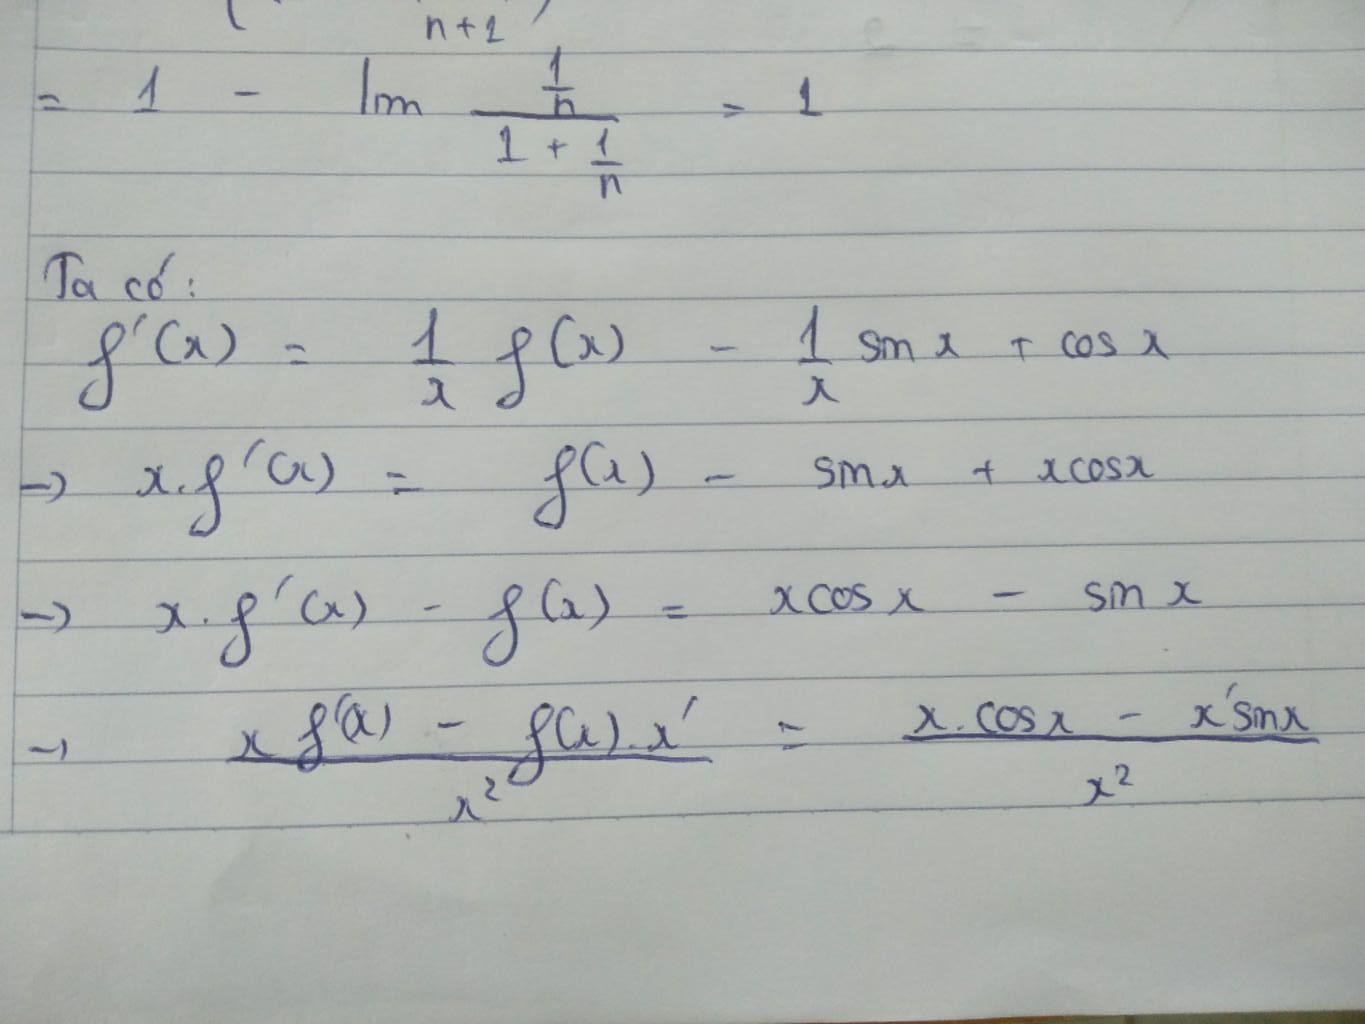 n+1
= 1 - lim \frac{\frac{1}{n}}{1 + \frac{1}{n}} = 1
Ta có:
f'(x) = \frac{1}{x} f(x) - \frac{1}{x} sin x + cos x
→ x.f'(x) = f(x) - sinx + xcosx
→ x.f'(x) - f(x) = xcosx - sin x
→ \frac{x f'(x) - f(x).x'}{x^2} = \frac{x.cosx - x'sinx}{x^2}